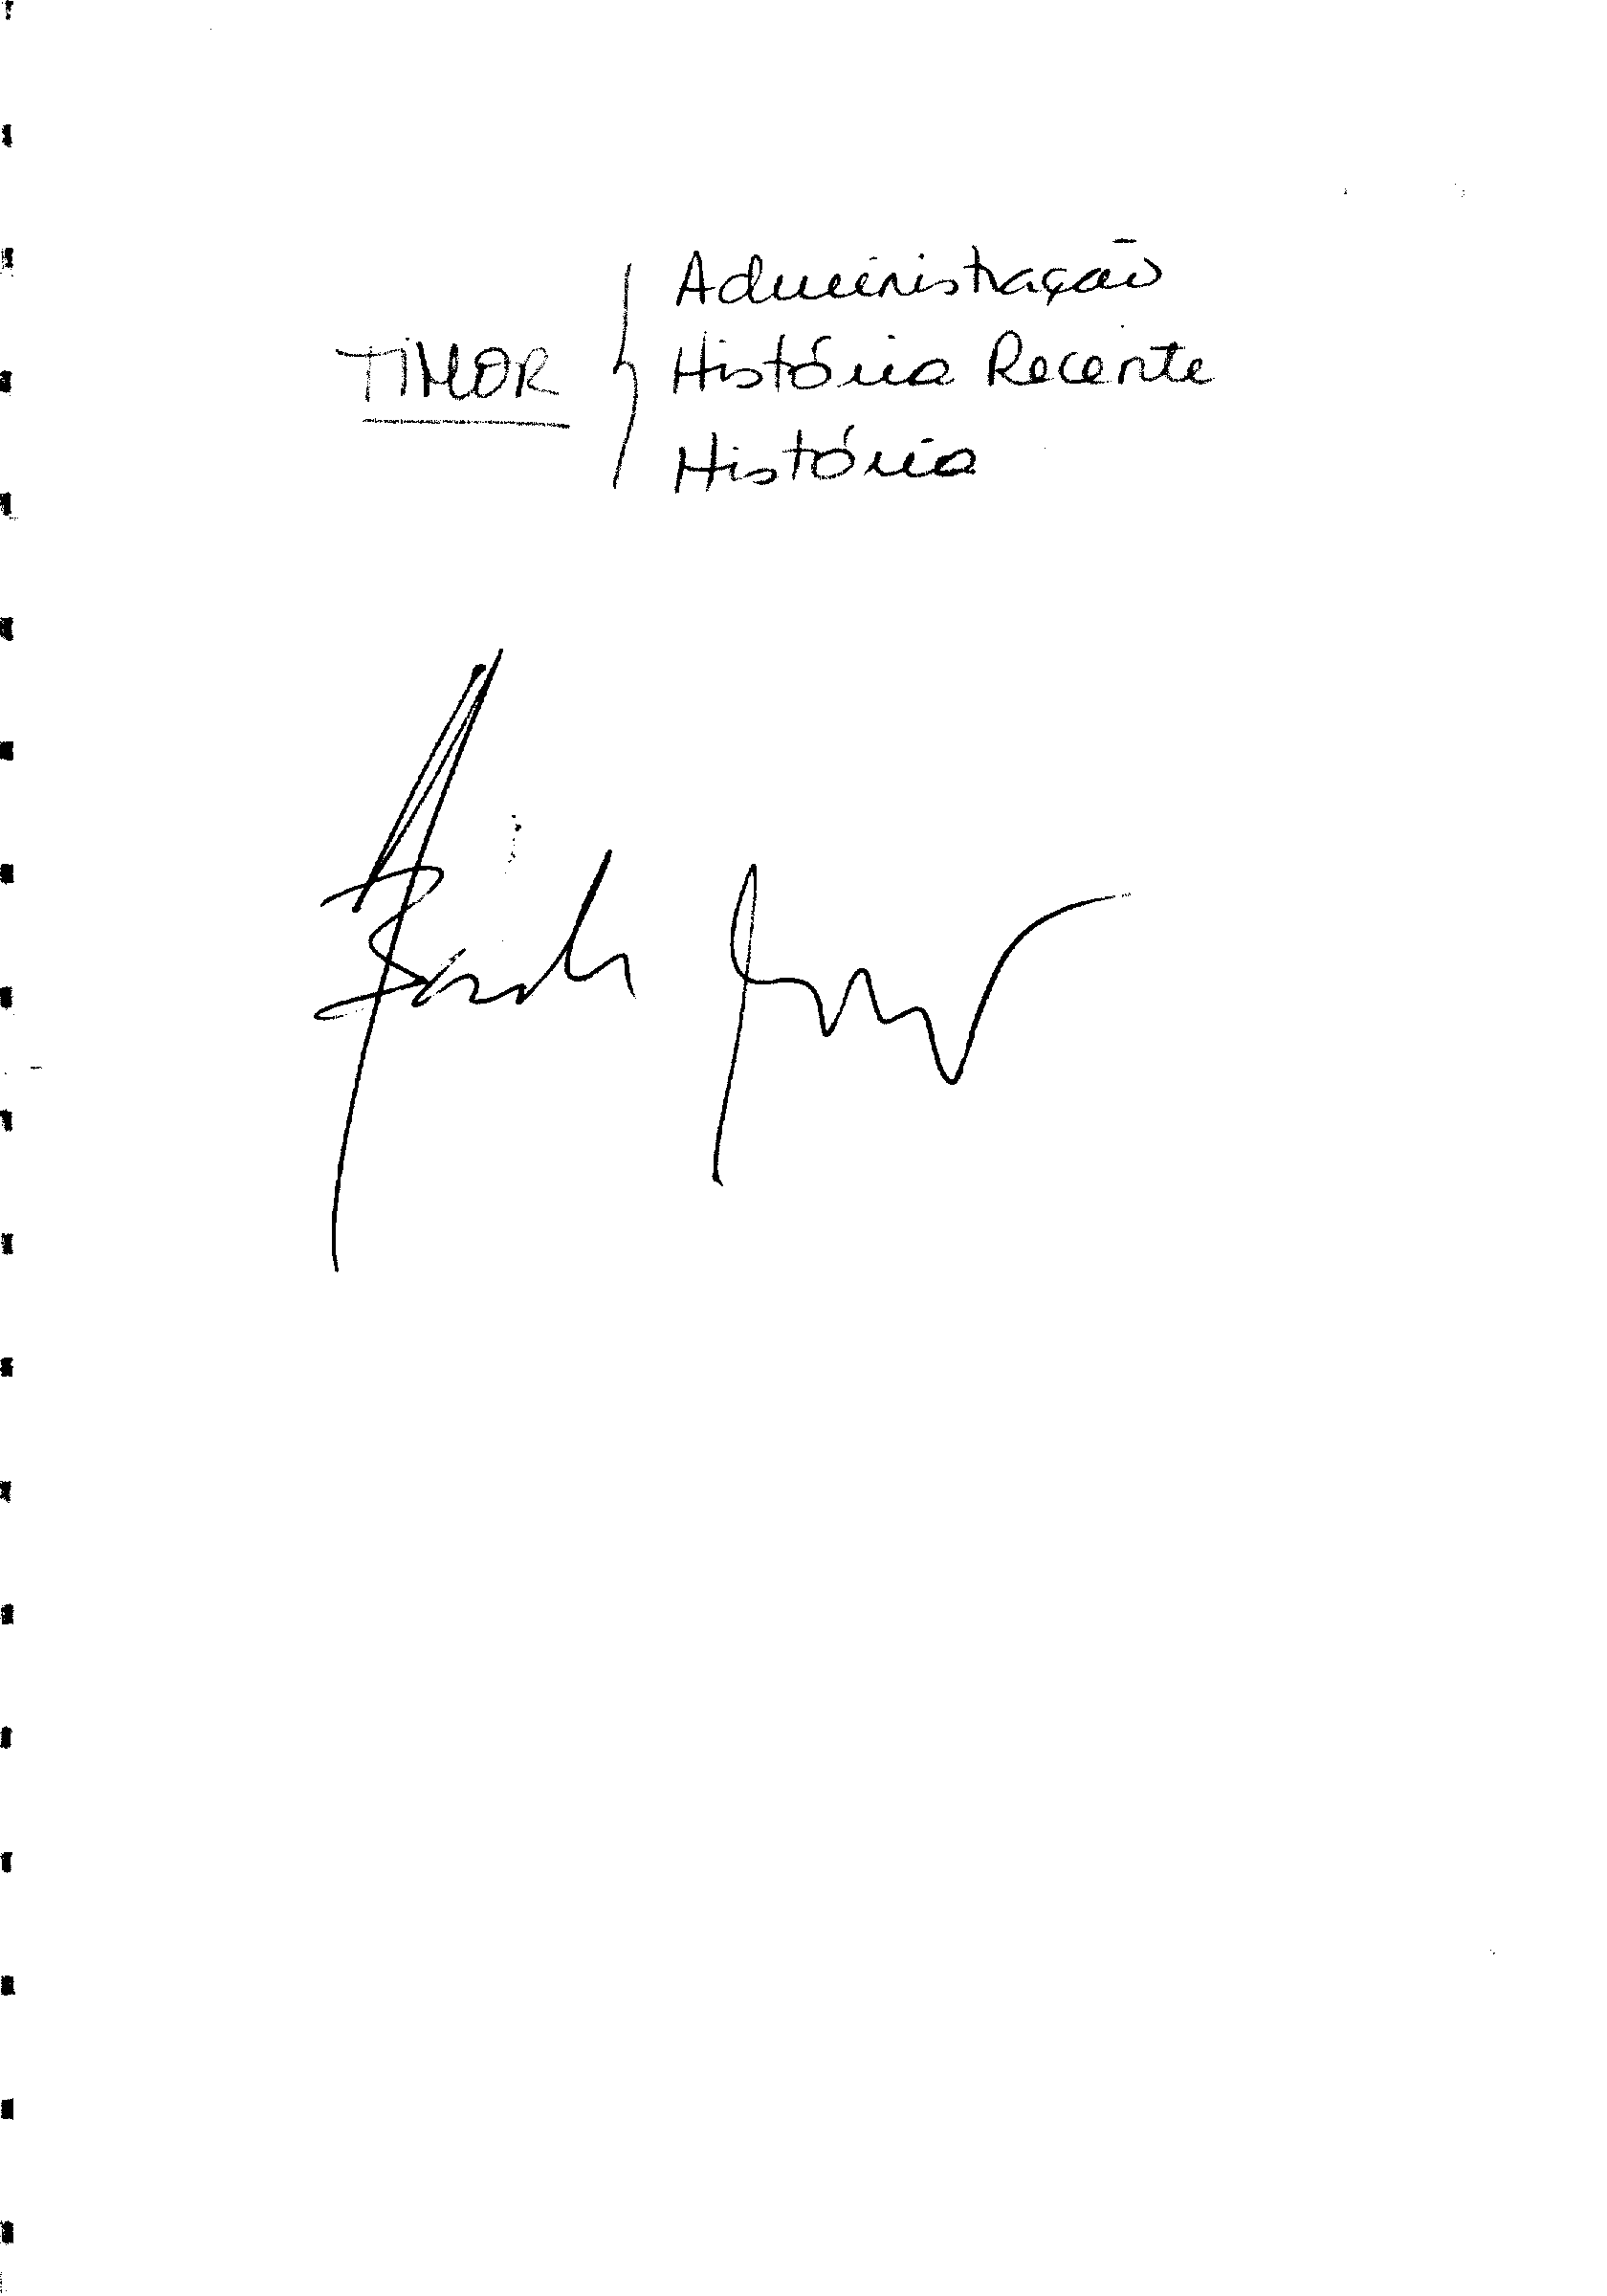 Administração
TIMOR { História Recente
História